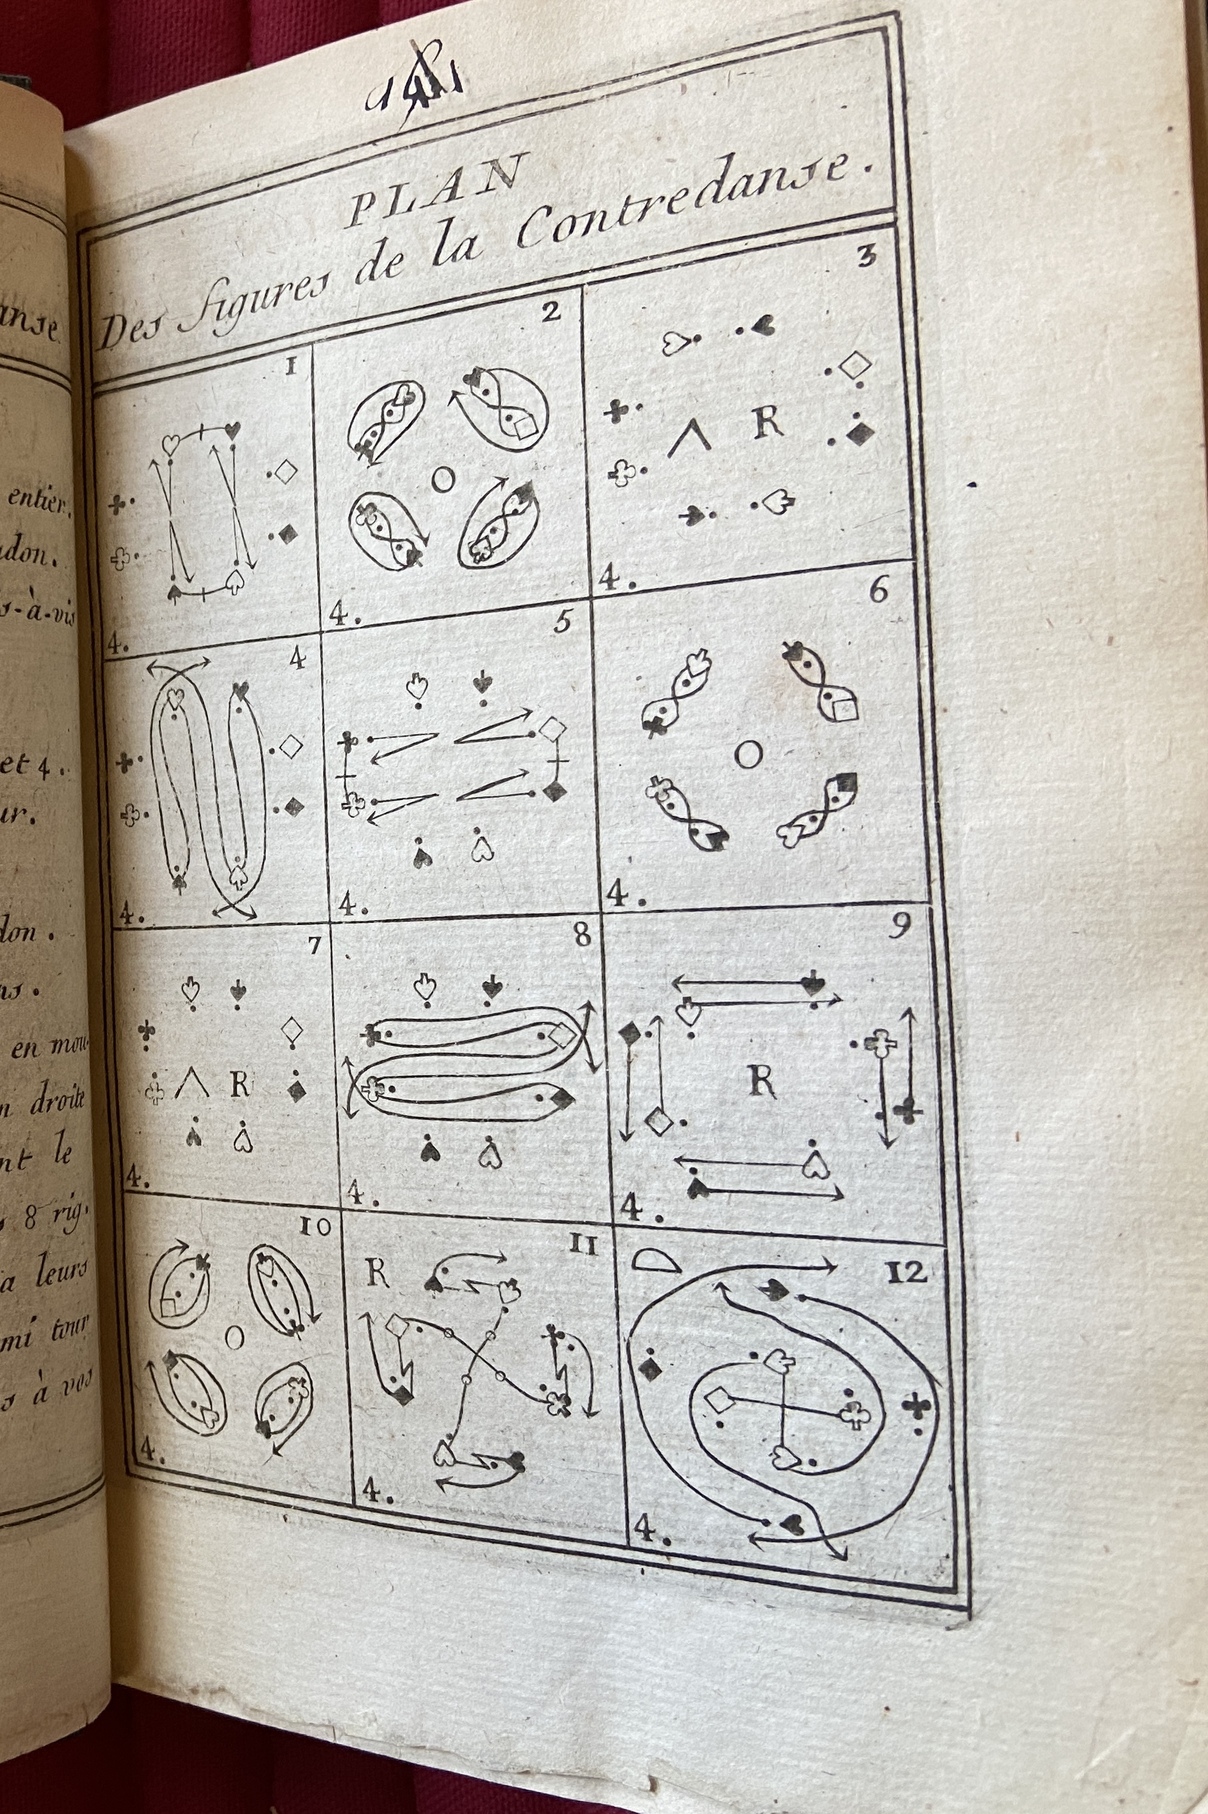 entier.
don.
s-à-vis
et 4.
ur.
don.
ns.
en mou-
n droite
nt le
s 8 rig.
a leurs
mi tour
s à vos
PLAN
Des figures de la Contredanse.
1
4.
2
4.
3
R
4.
4
4.
5
4.
6
4.
7
R
4.
8
4.
9
R
4.
10
4.
11
R
4.
12
4.